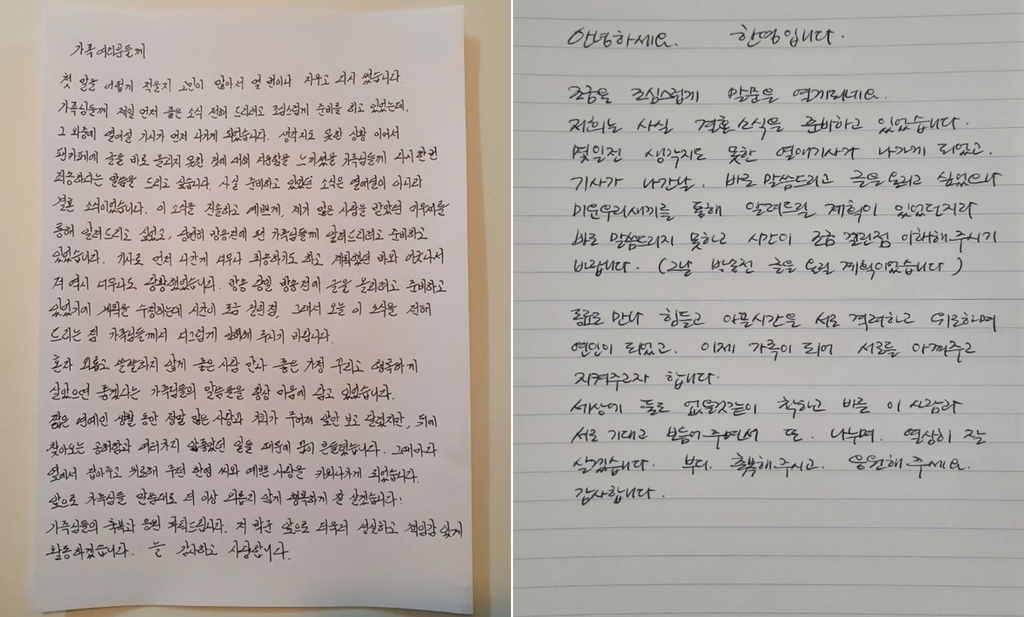 가족 여러분들께
첫 말을 어떻게 적을지 고민이 많아서 몇 번이나 지우고 다시 썼습니다
가족님들께 제일 먼저 좋은 소식 전해 드리려고 조심스럽게 준비를 하고 있었는데,
그 와중에 열애설 기사가 먼저 나가게 되었습니다. 생각지도 못한 상황 이어서
팬카페에 글을 바로 올리지 못한 점에 대해 서운함을 느끼셨을 가족님들께 다시 한번
죄송하다는 말씀을 드리고 싶습니다. 사실 준비하고 있었던 소식은 열애설이 아니라
결혼 소식이었습니다. 이 소식을 진솔하고 예쁘게, 제가 많은 사랑을 받았던 미우새를
통해 알려드리고 싶었고, 당연히 방송전에 먼저 가족님들께 알려드리려고 준비하고
있었습니다. 기사로 먼저 나간게 너무나 죄송하기도 하고 계획했던 바와 어긋나서
저 역시 너무나도 당황했었습니다. 방송 당일 방송전에 글을 올리려고 준비하고
있었기에 계획을 수정하는데 시간이 조금 걸린점, 그래서 오늘 이 소식을 전해
드리는 점 가족님들께서 너그럽게 이해해 주시기 바랍니다.
혼자 외롭고 쓸쓸하지 않게 좋은 사람 만나 좋은 가정 꾸리고 행복하게
살았으면 좋겠다는 가족님들의 말씀들을 항상 마음에 담고 있었습니다.
짧은 연예인 생활 동안 정말 많은 사랑과 기회가 주어져 앞만 보고 달렸지만, 뒤에
찾아오는 공허함과 여러가지 안좋았던 일들 때문에 많이 힘들었습니다. 그때마다
옆에서 잡아주고 위로해 주던 한영 씨와 예쁜 사랑을 키워나가게 되었습니다.
앞으로 가족님들 말씀대로 더 이상 외롭지 않게 행복하게 잘 살겠습니다!
가족님들의 축복과 응원 부탁드립니다. 저 박군 앞으로 더욱더 성실하고 책임감 있게
활동하겠습니다. 늘 감사하고 사랑합니다.
안녕하세요. 한영입니다.
조금은 조심스럽게 말문을 열게되네요.
저희는 사실 결혼소식을 준비하고 있었습니다.
몇일전 생각지도 못한 열애기사가 나가게 되었고.
기사가 나간날. 바로 말씀드리고 글을 올리고 싶었으나
미운우리새끼를 통해 알려드릴 계획이 있었던지라
바로 말씀드리지 못하고 시간이 조금 걸린점 이해해 주시기
바랍니다. (그날 방송전 글을 올릴 계획이었습니다)
동료로 만나 힘들고 아플시간을 서로 격려하고 위로하며
연인이 되었고. 이제 가족이 되어 서로를 아껴주고
지켜주고자 합니다.
세상에 둘도 없을것같이 착하고 바른 이 사람과
서로 기대고 보듬어 주면서 또. 나누며. 열심히 잘
살겠습니다. 부디. 축복해 주시고. 응원해 주세요.
감사합니다.